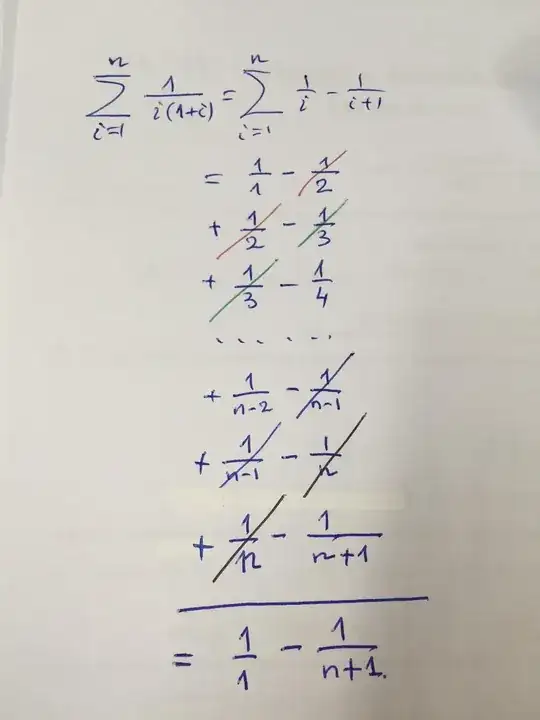 n n
∑ 1/i(1+i) = ∑ 1/i − 1/i+1
i=1 i=1
= 1/1 − 1/2
+ 1/2 − 1/3
+ 1/3 − 1/4
.......
+ 1/n−2 − 1/n−1
+ 1/n−1 − 1/n
+ 1/n − 1/n+1
= 1/1 − 1/n+1.